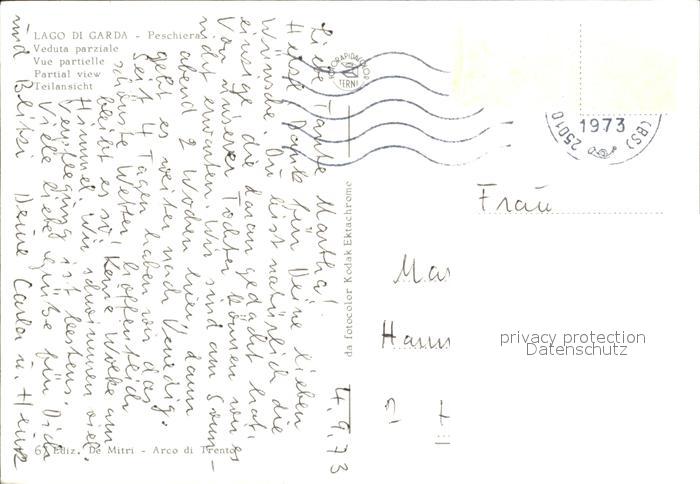 LAGO DI GARDA - Peschiera
Veduta parziale
Vue partielle
Partial view
Teilansicht
4.9.73
Liebe Tante Martha!
Herzl. Dank für Deine lieben
Wünsche. Du bist natürlich die
einzige die daran gedacht hat.
Von unserer Tochter können wir es
nicht erwarten. Wir sind am Sonn-
abend 2 Wochen hier, dann
geht es weiter nach Venedig.
Seit 4 Tagen haben wir das
schönste Wetter, hoffentlich
bleibt es so! Keine Wolke am
Himmel. Wir schwimmen viel.
Verpflegung ist bestens.
Viele liebe Grüße für Dich
und Blitzi Deine Carla u. Heinz
6 Ediz. De Mitri - Arco di Trento
da fotocolor Kodak Ektachrome
FOTORAPIDACOLOR
TERNI
25010
1973
(BS)
Frau
Mar
Hann
privacy protection
Datenschutz